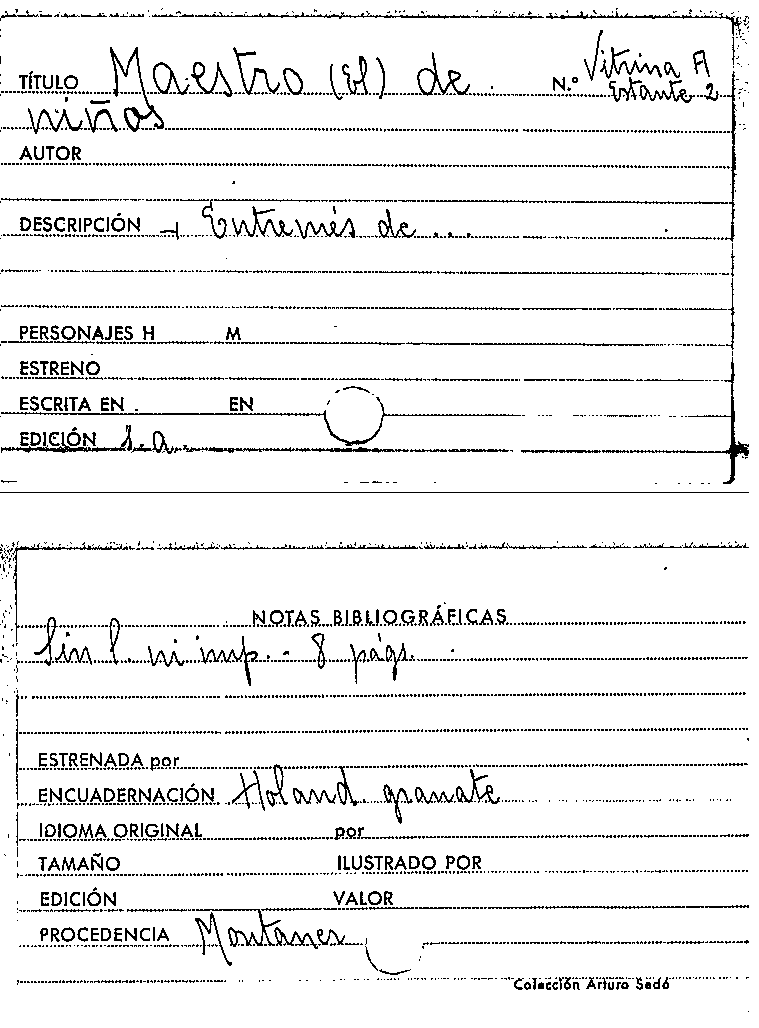 TÍTULO Maestro (El) de N.º Vitrina A
niños Estante 2
AUTOR
DESCRIPCIÓN Entremés de ...
PERSONAJES H M
ESTRENO
ESCRITA EN EN
EDICIÓN s.a.
NOTAS BIBLIOGRÁFICAS
Sin l. ni imp. - 8 págs.
ESTRENADA por
ENCUADERNACIÓN Holand granate
IDIOMA ORIGINAL por
TAMAÑO ILUSTRADO POR
EDICIÓN VALOR
PROCEDENCIA Montaner
Colección Arturo Sedó